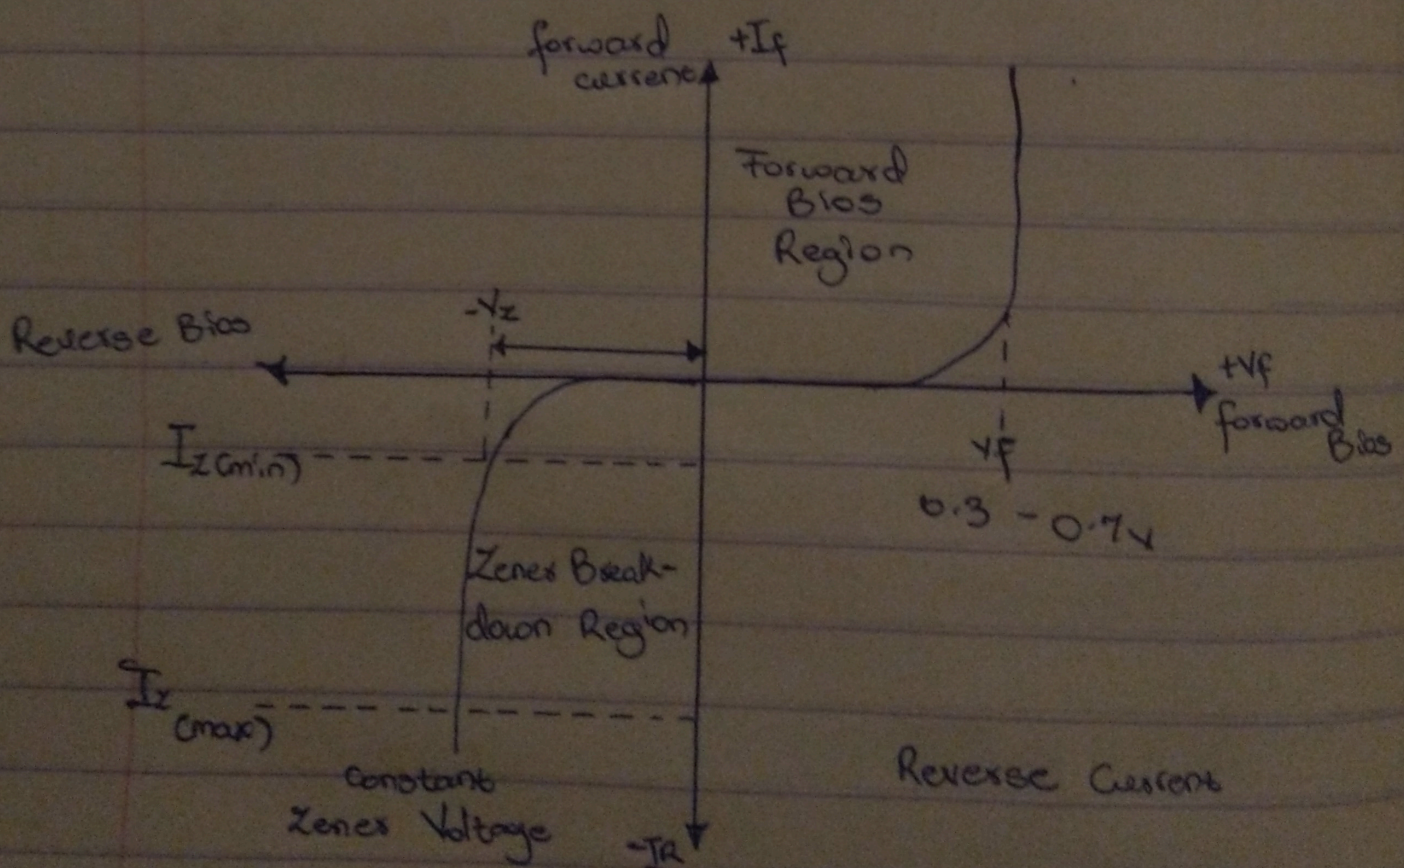 forward +If
current
Forward
Bias
Region
-Vz
Reverse Bias
+Vf
forward
Bias
Iz(min)
Vf
0.3 - 0.7v
Zener Break-
down Region
Iz
(max)
Constant
Zener Voltage
Reverse Current
-IR